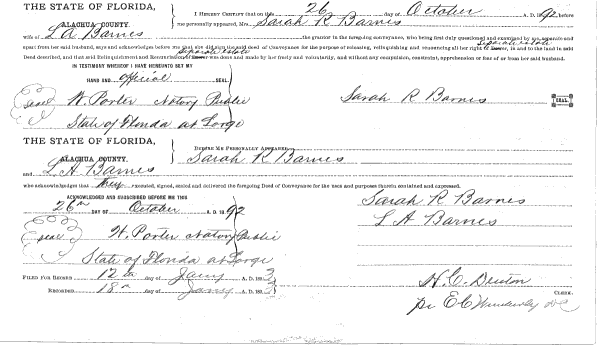 THE STATE OF FLORIDA,
ALACHUA COUNTY.
I HEREBY CERTIFY that on this 26 day of October A. D. 1892 before
me personally appeared, Mrs. Sarah R Barnes
wife of L A Barnes the grantor in the foregoing conveyance, who being first duly questioned and examined by me, separate and
apart from her said husband, says and acknowledges before me that she did sign the said deed of Conveyance for the purpose of releasing, relinquishing and renouncing all her right of dower, separate estate in and to the land in said
Deed described, and that said Relinquishment and Renunciation of dower separate estate was done and made by her freely and voluntarily, and without any compulsion, constraint, apprehension or fear of or from her said husband.
IN TESTIMONY WHEREOF I HAVE HEREUNTO SET MY
HAND AND official SEAL
seal W. Porter Notary Public
State of Florida at Large
Sarah R Barnes SEAL.
THE STATE OF FLORIDA,
ALACHUA COUNTY.
BEFORE ME PERSONALLY APPEARED
Sarah R Barnes
and L A Barnes
who acknowledged that they executed, signed, sealed and delivered the foregoing Deed of Conveyance for the uses and purposes therein contained and expressed.
ACKNOWLEDGED AND SUBSCRIBED BEFORE ME THIS
26th DAY OF October A. D. 1892
Sarah R Barnes
L A Barnes
seal W. Porter Notary Public
State of Florida at Large
FILED FOR RECORD 12th day of Jany A. D. 1893
RECORDED 18th day of Jany A. D. 1893
H. C. Denton
CLERK.
pr E C